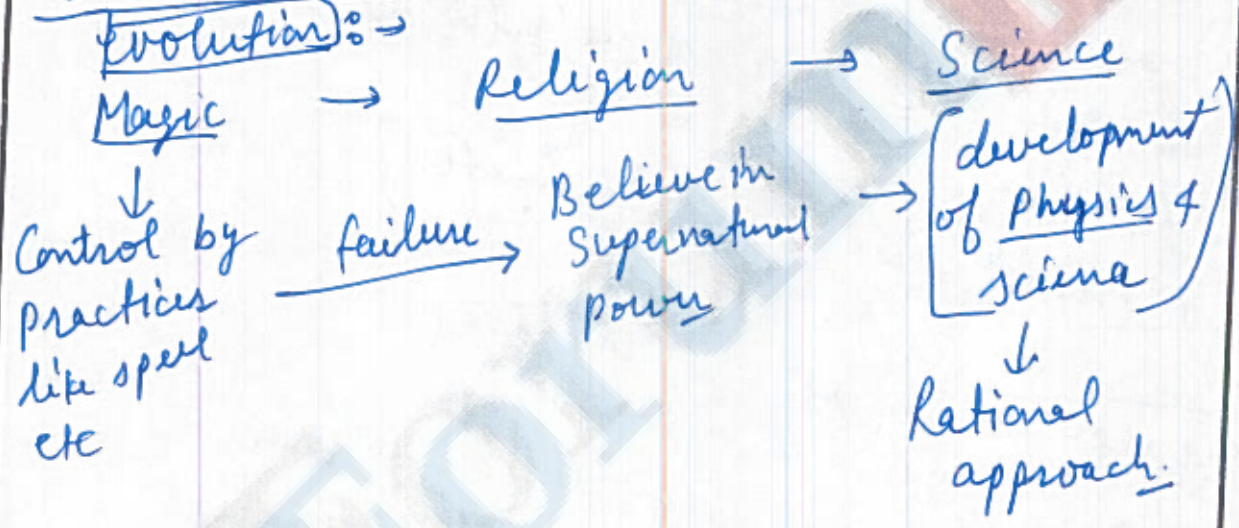 Evolution :→
Magic → Religion → Science
↓
Control by
practices
like spell
etc
failure →
Believe in
Supernatural
power
→ (development
of physics &
sciena)
↓
Rational
approach.
Forum